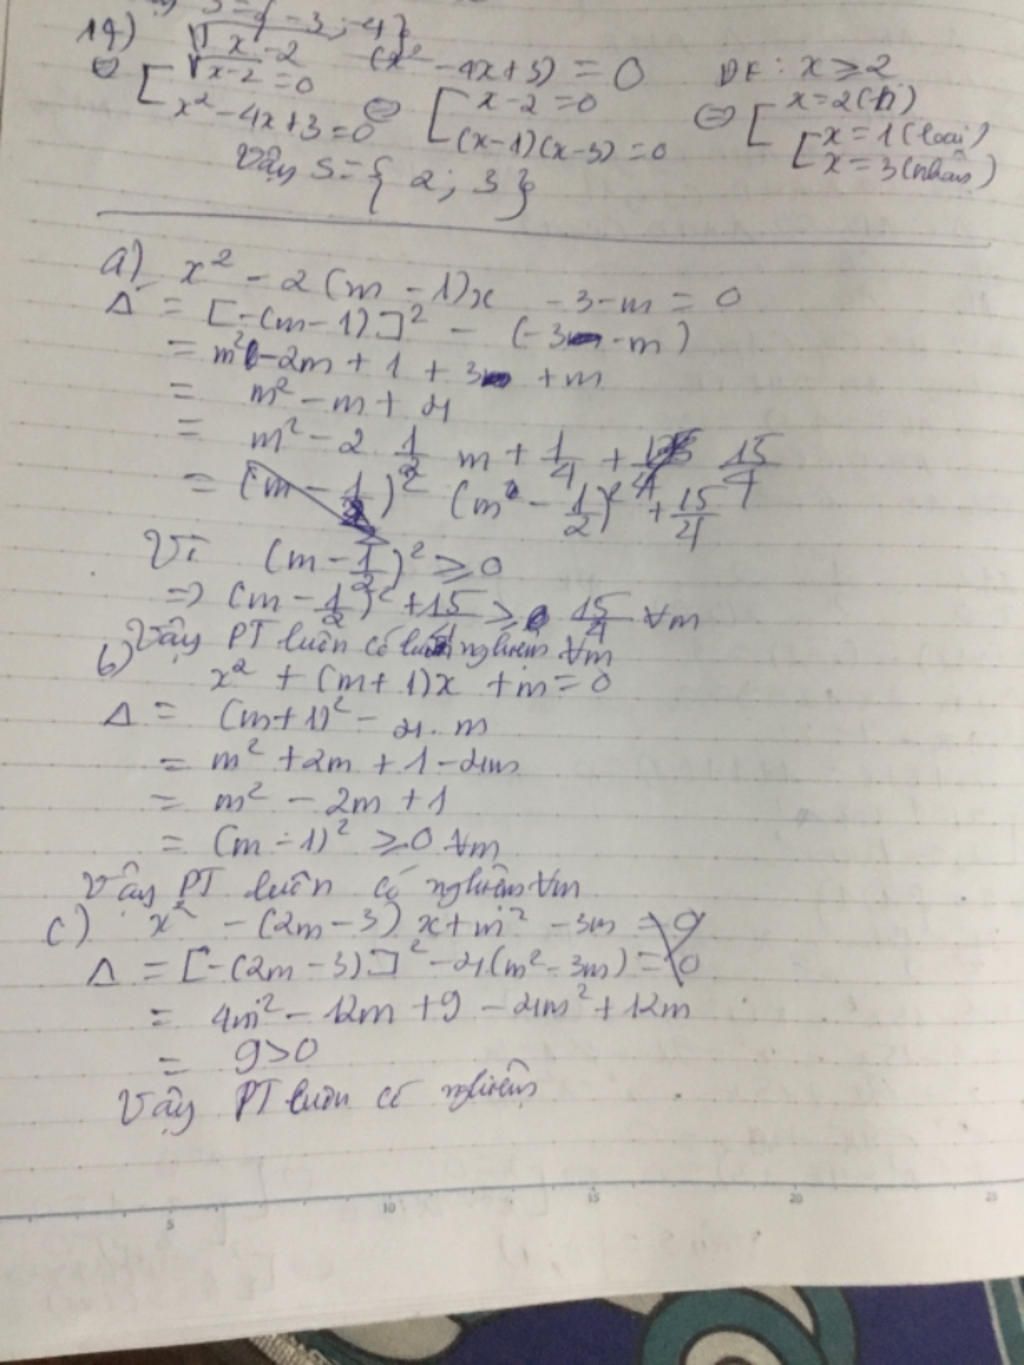 S = { -3; -4}
19) √x-2 (x² - 4x+3) = 0 ĐK: x ≥ 2
⇔ [ √x-2 = 0 ⇔ [ x-2 = 0 ⇔ [ x=2(n)
x² - 4x+3 = 0 (x-1)(x-3) = 0 [ x = 1 (loại)
x = 3 (nhận)
Vậy S = { 2; 3 }
a) x² - 2(m-1)x -3-m = 0
Δ' = [-(m-1)]² - (-3-m)
= m² -2m + 1 + 3 + m
= m² - m + 4
= m² - 2 1/2 m + 1/4 + 15/4
= (m - 1/2)² + 15/4
Vì (m - 1/2)² ≥ 0
=> (m - 1/2)² + 15/4 ≥ 15/4 ∀m
Vậy PT luôn có nghiệm ∀m
b) x² + (m+1)x + m = 0
Δ = (m+1)² - 4. m
= m² + 2m + 1 - 4m
= m² - 2m + 1
= (m-1)² ≥ 0 ∀m
Vậy PT luôn có nghiệm ∀m
c) x² - (2m-3) x + m² - 3m = 0
Δ = [-(2m-3)]² - 4(m² - 3m) = 0
= 4m² - 12m + 9 - 4m² + 12m
= 9 > 0
Vậy PT luôn có nghiệm
5 10 15 20 25